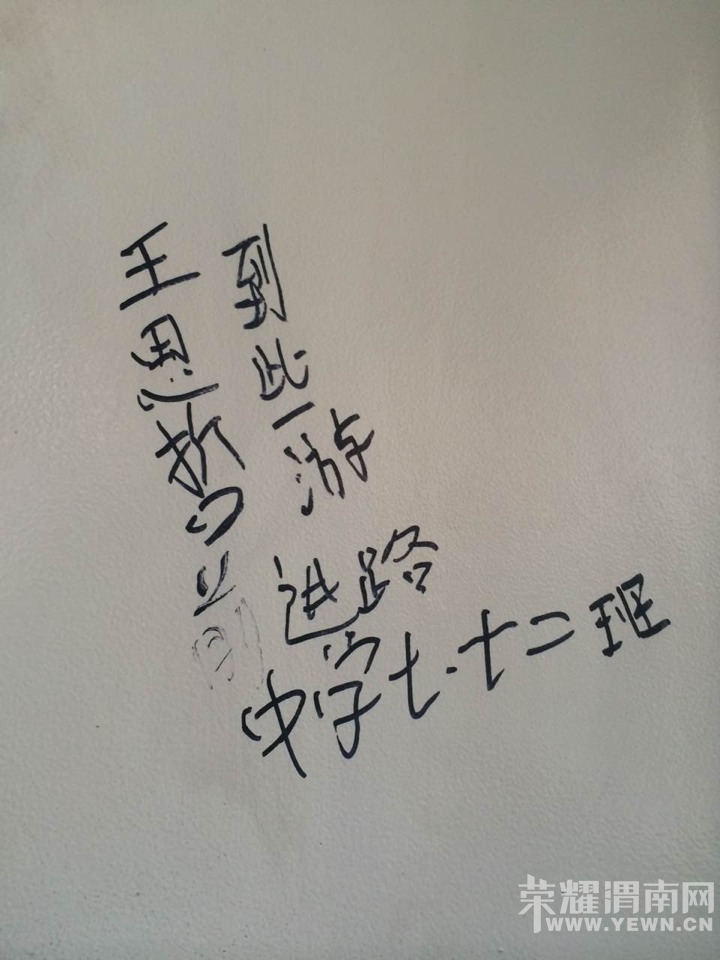 王思哲
到此一游
前进路
中学七·十二班
荣耀渭南网
WWW.YEWN.CN